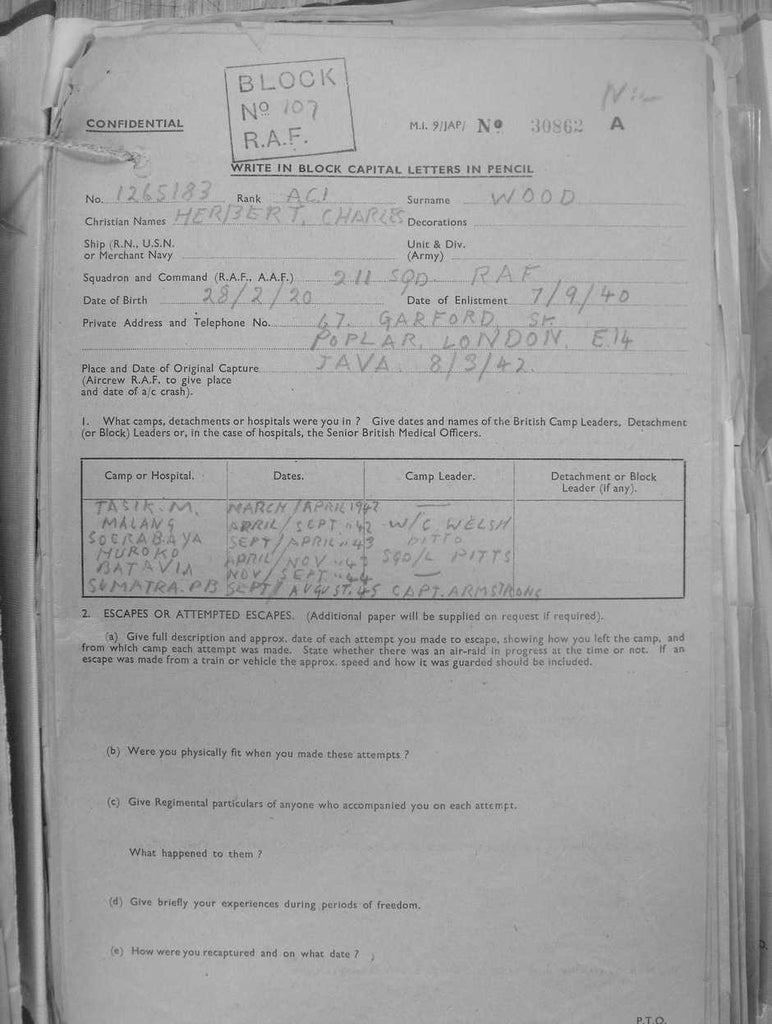 BLOCK
No 107
R.A.F.
CONFIDENTIAL
M.I. 9/JAP/ No 30862 A
WRITE IN BLOCK CAPITAL LETTERS IN PENCIL
No. 1265183 Rank AC1 Surname WOOD
Christian Names HERBERT. CHARLES Decorations
Ship (R.N., U.S.N. or Merchant Navy
Unit & Div. (Army)
Squadron and Command (R.A.F., A.A.F.) 211 SQD RAF
Date of Birth 28/2/20 Date of Enlistment 7/9/40
Private Address and Telephone No. 67. GARFORD. St.
POPLAR, LONDON. E.14
Place and Date of Original Capture JAVA. 8/3/42.
(Aircrew R.A.F. to give place
and date of a/c crash).
1. What camps, detachments or hospitals were you in ? Give dates and names of the British Camp Leaders, Detachment
(or Block) Leaders or, in the case of hospitals, the Senior British Medical Officers.
Camp or Hospital. Dates. Camp Leader. Detachment or Block Leader (if any).
TASIK. M. MARCH/APRIL 1942 —
MALANG APRIL/SEPT "42 W/C WELSH
SOERABAYA SEPT/APRIL "43 DITTO
HUROKO APRIL/NOV "43 SQD/L PITTS
BATAVIA NOV/SEPT "44 —
SUMATRA. PB SEPT/AUGUST. 45 CAPT. ARMSTRONG
2. ESCAPES OR ATTEMPTED ESCAPES. (Additional paper will be supplied on request if required).
(a) Give full description and approx. date of each attempt you made to escape, showing how you left the camp, and
from which camp each attempt was made. State whether there was an air-raid in progress at the time or not. If an
escape was made from a train or vehicle the approx. speed and how it was guarded should be included.
(b) Were you physically fit when you made these attempts ?
(c) Give Regimental particulars of anyone who accompanied you on each attempt.
What happened to them ?
(d) Give briefly your experiences during periods of freedom.
(e) How were you recaptured and on what date ?
P.T.O.